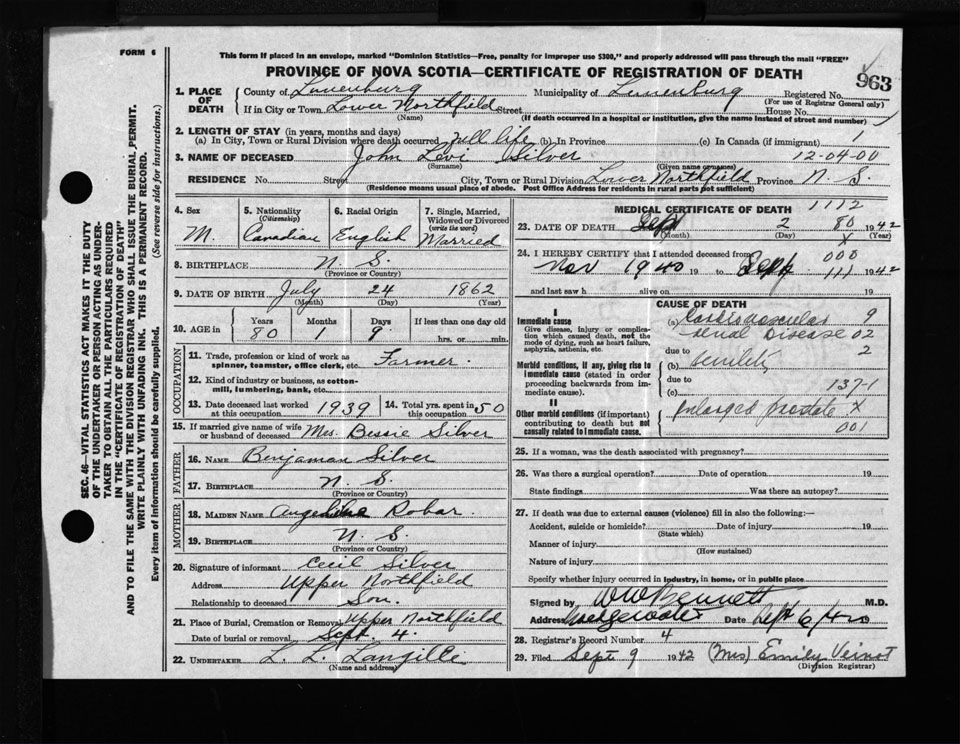 FORM 6
This form if placed in an envelope, marked "Dominion Statistics—Free, penalty for improper use $300," and properly addressed will pass through the mail "FREE"
PROVINCE OF NOVA SCOTIA—CERTIFICATE OF REGISTRATION OF DEATH
963
SEC. 46—VITAL STATISTICS ACT MAKES IT THE DUTY
OF THE UNDERTAKER OR PERSON ACTING AS UNDER-
TAKER TO OBTAIN ALL THE PARTICULARS REQUIRED
IN THE "CERTIFICATE OF REGISTRATION OF DEATH"
AND TO FILE THE SAME WITH THE DIVISION REGISTRAR WHO SHALL ISSUE THE BURIAL PERMIT.
WRITE PLAINLY WITH UNFADING INK. THIS IS A PERMANENT RECORD.
Every item of information should be carefully supplied. (See reverse side for instructions.)
1. PLACE OF DEATH
County of Lunenburg Municipality of Lunenburg Registered No.
(For use of Registrar General only)
If in City or Town Lower Northfield Street House No.
(Name) (If death occurred in a hospital or institution, give the name instead of street and number)
2. LENGTH OF STAY (in years, months and days)
(a) In City, Town or Rural Division where death occurred full life (b) In Province (c) In Canada (if immigrant) 1
3. NAME OF DECEASED John Levi Silver 12-04-00
(Surname) (Given name or names)
RESIDENCE No. Street City, Town or Rural Division Lower Northfield Province N. S.
(Residence means usual place of abode. Post Office Address for residents in rural parts not sufficient)
4. Sex
M.
5. Nationality
(Citizenship)
Canadian
6. Racial Origin
English
7. Single, Married,
Widowed or Divorced
(write the word)
Married
8. BIRTHPLACE N. S.
(Province or Country)
9. DATE OF BIRTH July 24 1862
(Month) (Day) (Year)
10. AGE in Years Months Days If less than one day old
80 1 9 hrs. or min.
OCCUPATION
11. Trade, profession or kind of work as
spinner, teamster, office clerk, etc. Farmer.
12. Kind of industry or business, as cotton-
mill, lumbering, bank, etc.
13. Date deceased last worked
at this occupation 1939
14. Total yrs. spent in
this occupation 50
15. If married give name of wife
or husband of deceased Mrs. Bessie Silver
FATHER
16. NAME Benjaman Silver
17. BIRTHPLACE N. S.
(Province or Country)
MOTHER
18. MAIDEN NAME Robar.
19. BIRTHPLACE N. S.
(Province or Country)
20. Signature of informant Cecil Silver
Address Upper Northfield
Relationship to deceased Son.
21. Place of Burial, Cremation or Removal Upper Northfield
Date of burial or removal Sept. 4.
22. UNDERTAKER L. L. Langille
(Name and address)
MEDICAL CERTIFICATE OF DEATH 1112
23. DATE OF DEATH Sept 2 80 1942
(Month) (Day) X (Year)
24. I HEREBY CERTIFY that I attended deceased from 000
Nov 1940 19 to Sept 111 1942
and last saw h alive on 19
CAUSE OF DEATH
I
Immediate cause
Give disease, injury or complica-
tion which caused death, not the
mode of dying, such as heart failure,
asphyxia, asthenia, etc.
(a) Cardiovascular 9
renal Disease 02
due to 2
Morbid conditions, if any, giving rise to
immediate cause (stated in order
proceeding backwards from im-
mediate cause).
(b) Senility
due to
(c) 137-1
II
Other morbid conditions (if important)
contributing to death but not
causally related to immediate cause.
Enlarged prostate X
001
25. If a woman, was the death associated with pregnancy?
26. Was there a surgical operation? Date of operation 19
State findings Was there an autopsy?
27. If death was due to external causes (violence) fill in also the following:—
Accident, suicide or homicide? Date of injury 19
(State which)
Manner of injury
(How sustained)
Nature of injury
Specify whether injury occurred in industry, in home, or in public place
Signed by W W Bennett M.D.
Address Bridgewater Date Sept 6/42
28. Registrar's Record Number 4
29. Filed Sept 9 1942 (Mrs) Emily Veinot
(Division Registrar)